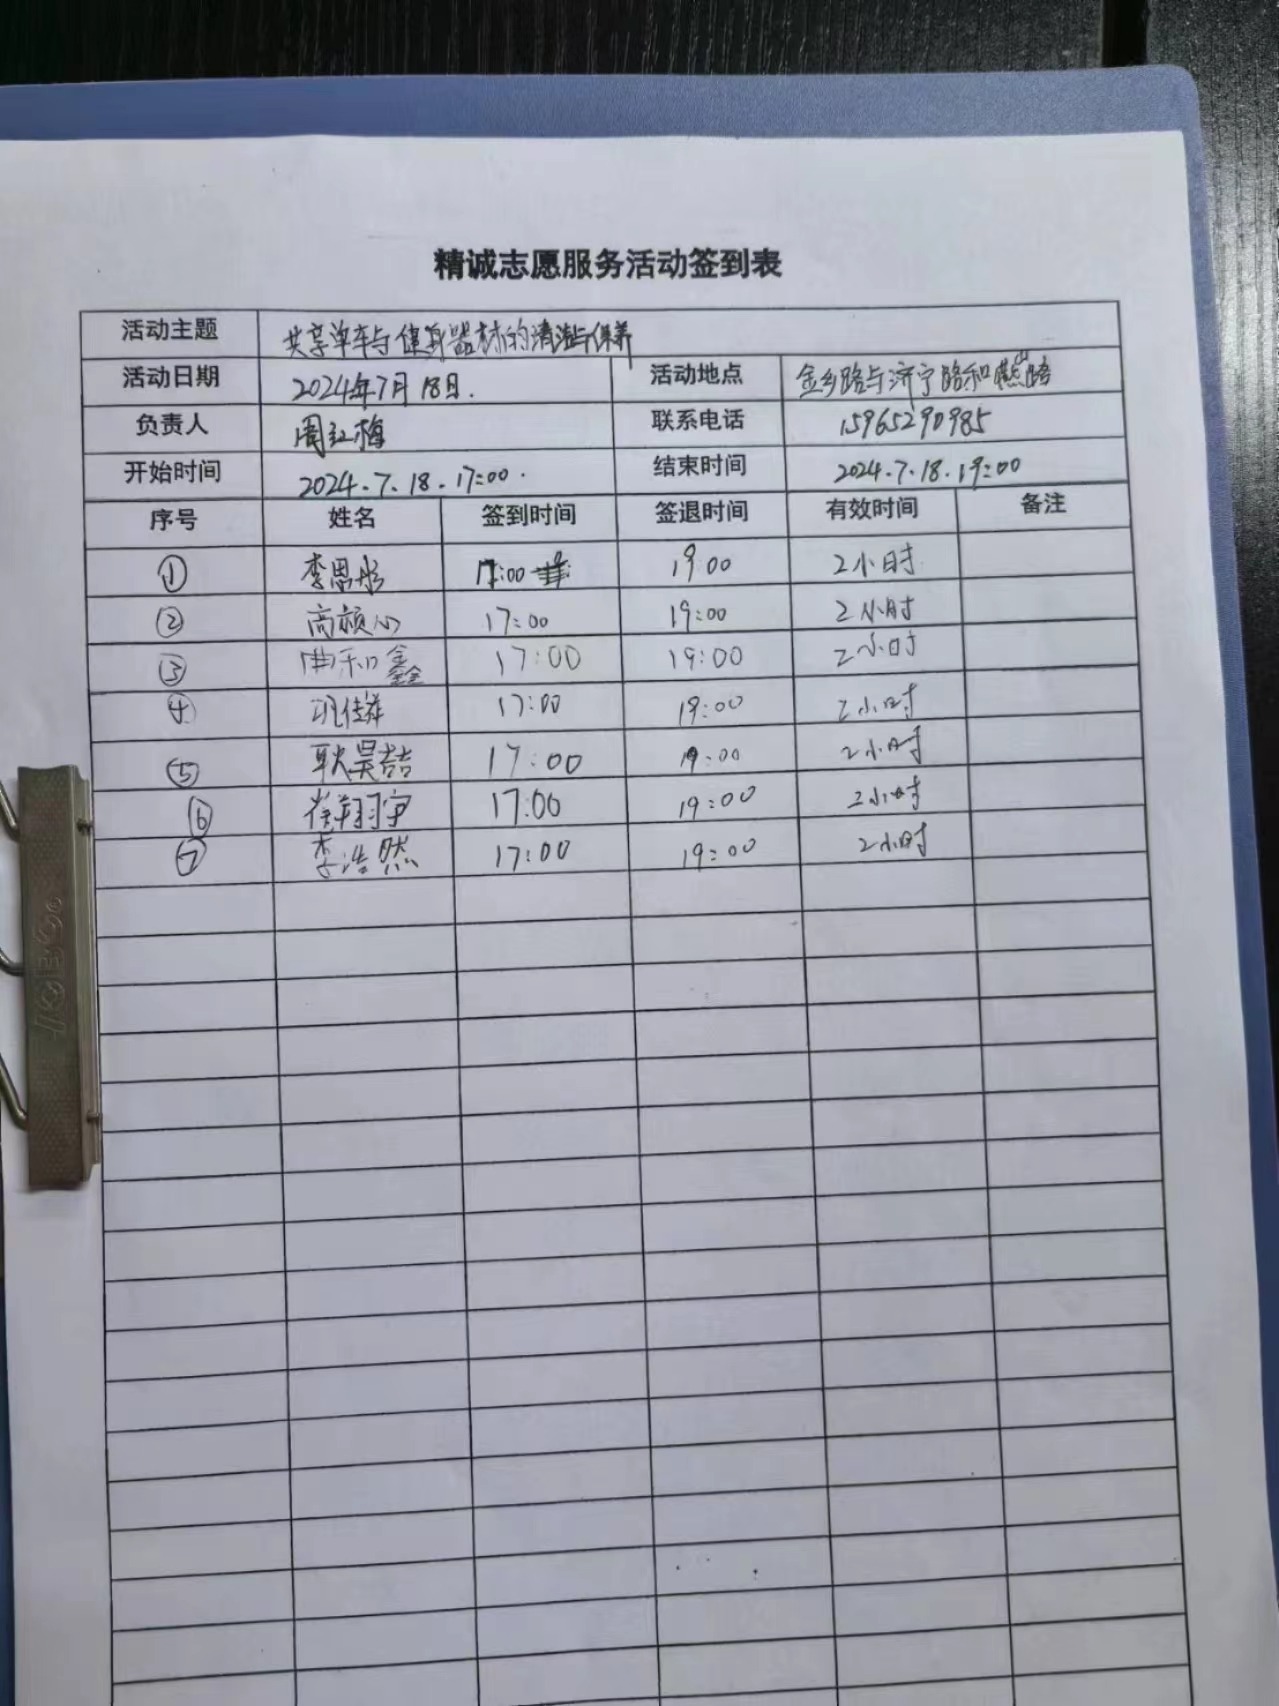 精诚志愿服务活动签到表
活动主题 共享单车与健身器材的清洁与保养
活动日期 2024年7月18日. 活动地点 金乡路与济宁路和燃路
负责人 周红梅 联系电话 15965290985
开始时间 2024.7.18.17:00. 结束时间 2024.7.18.19:00
序号 姓名 签到时间 签退时间 有效时间 备注
① 李思彤 17:00 19:00 2小时
② 高颜心 17:00 19:00 2小时
③ 曲和鑫 17:00 19:00 2小时
④ 17:00 19:00 2小时
⑤ 耿昊喆 17:00 19:00 2小时
⑥ 翔宇 17:00 19:00 2小时
⑦ 李浩然 17:00 19:00 2小时